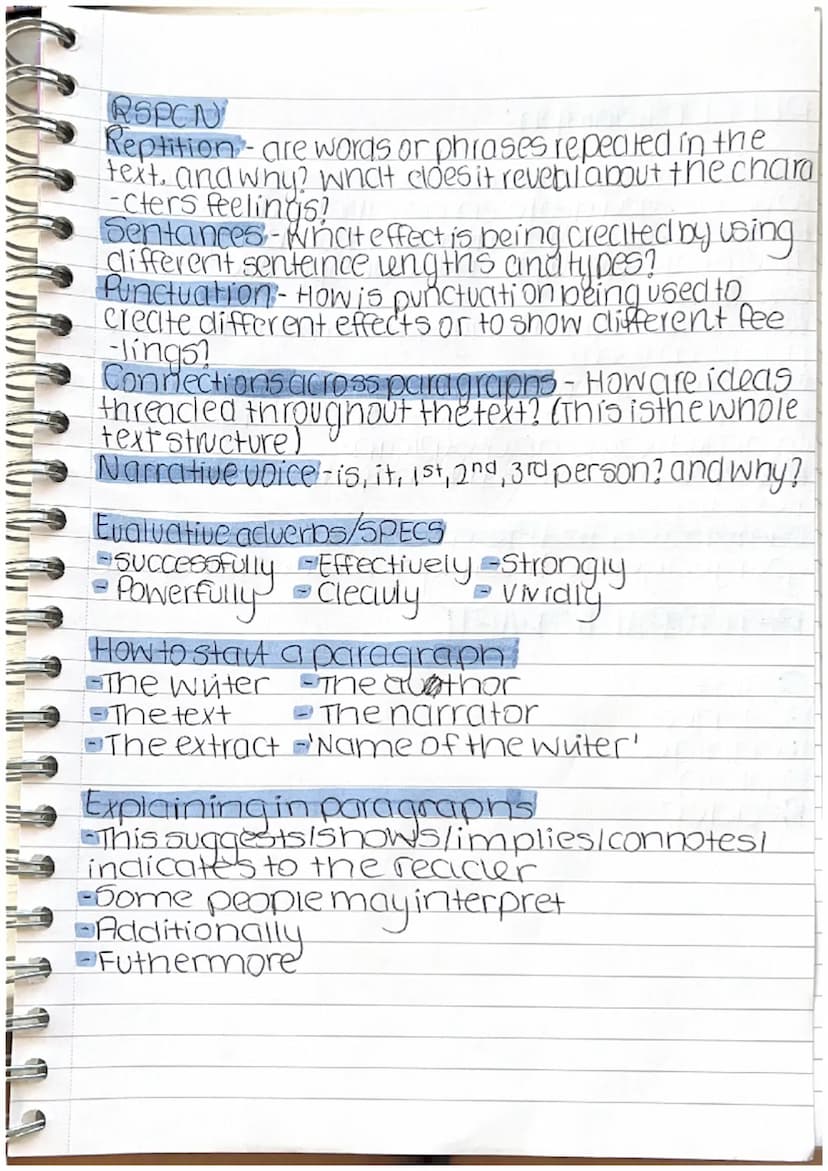 RSPCN
Reptition - are words or phrases repeated in the
text, and why? What does it reveal about the chara
-cters feelings?
Sentances - What effect is being created by using
different sentence lengths and types?
Punctuation - How is punctuation being used to
create different effects or to show different fee
-lings?
Connections across paragraphs - How are ideas
threaded throughout the text? (This is the whole
text structure)
Narrative voice - is, it, 1st, 2nd, 3rd person? and why?
Evaluative adverbs/SPECS
- Successfully - Effectively - Strongly
- Powerfully - Clearly - Vividly
How to start a paragraph
- The writer - The author
- The text - The narrator
- The extract - 'Name of the writer'
Explaining in paragraphs
- This suggests/shows/implies/connotes/
indicates to the reader
- Some people may interpret
- Additionally
- Futhermore